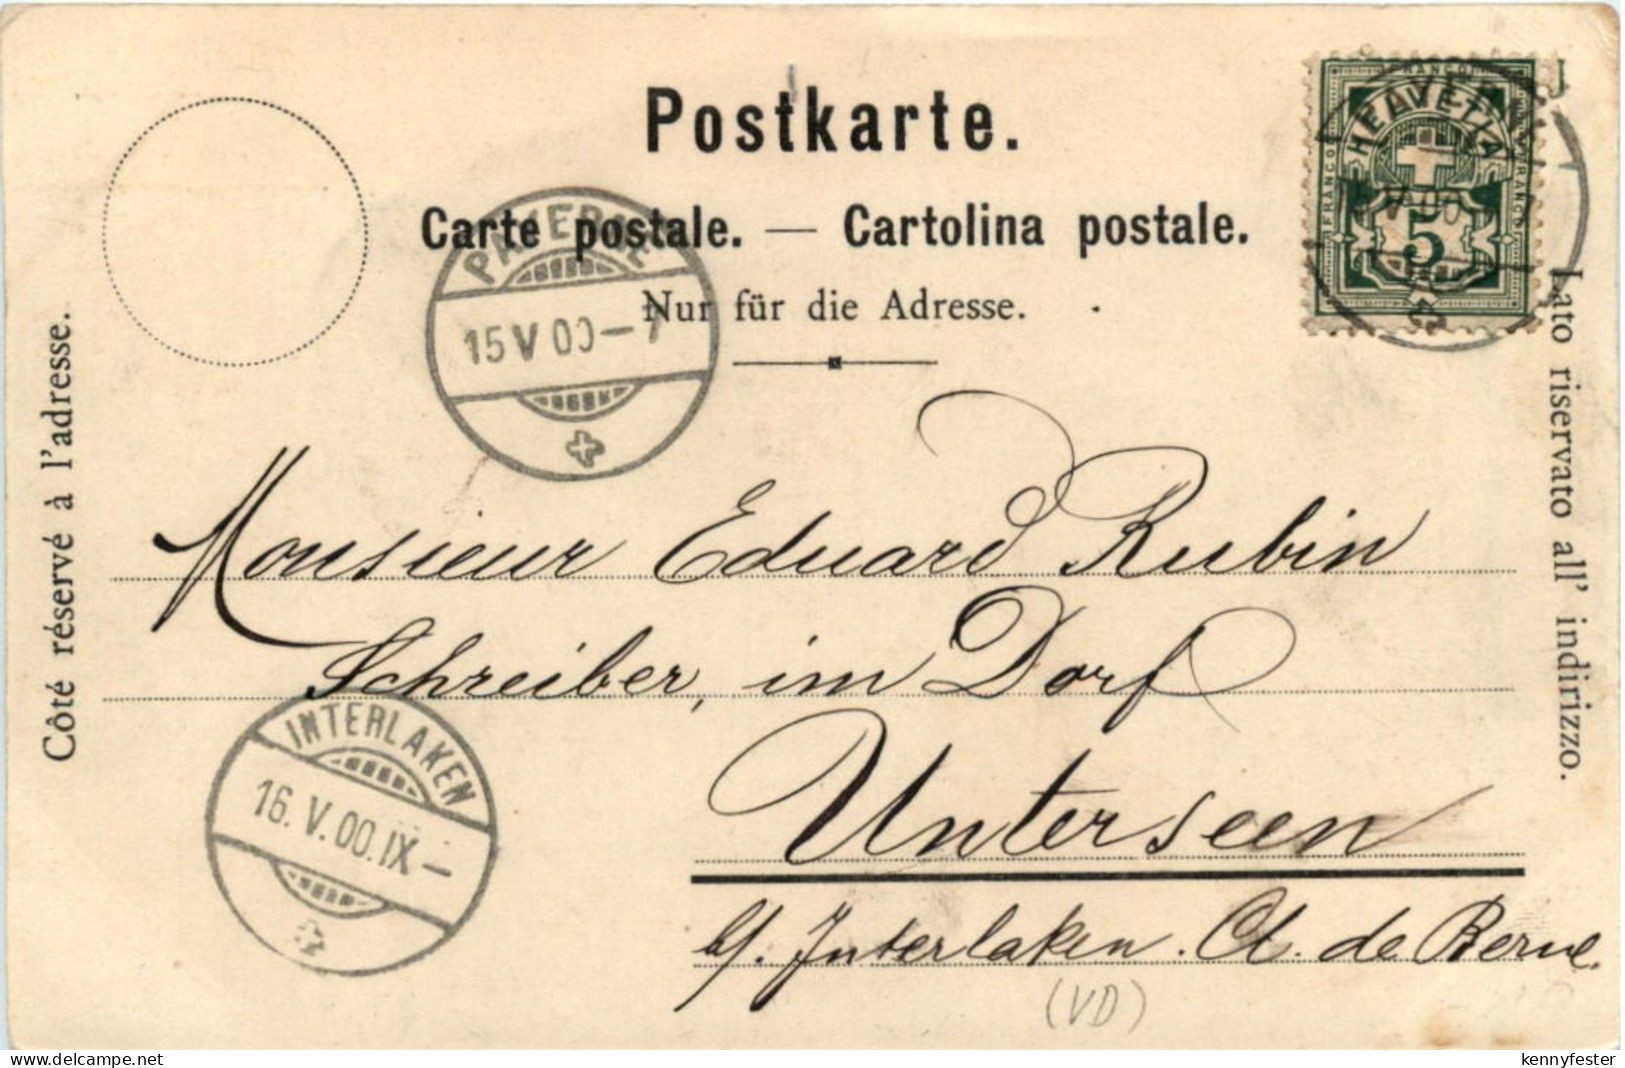 Postkarte.
Carte postale. — Cartolina postale.
Nur für die Adresse.
Côté réservé à l'adresse.
Lato riservato all' indirizzo.
PAYERNE
15 V 00 – 7
HELVETIA
FRANCO
FRANCO
FRANCO
V 00
5
Monsieur Eduard Rubin
Schreiber, im Dorf
Unterseen
b/. Interlaken. Ct. de Berne.
(VD)
INTERLAKEN
16. V. 00. IX –
https://www.delcampe.net
kennyfester